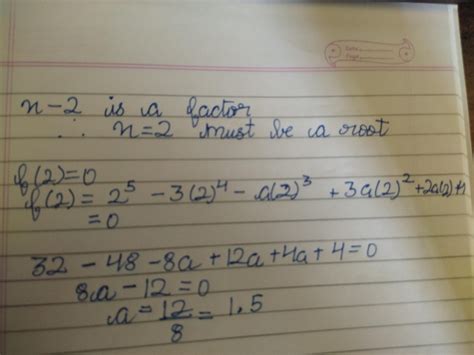 Date:
Page:
x-2 is a factor
∴ x=2 must be a root
f(2)=0
f(2) = 2⁵ - 3(2)⁴ - a(2)³ + 3a(2)² + 2a(2)+4
= 0
32 - 48 - 8a + 12a + 4a + 4 = 0
8a - 12 = 0
a = 12/8 = 1.5